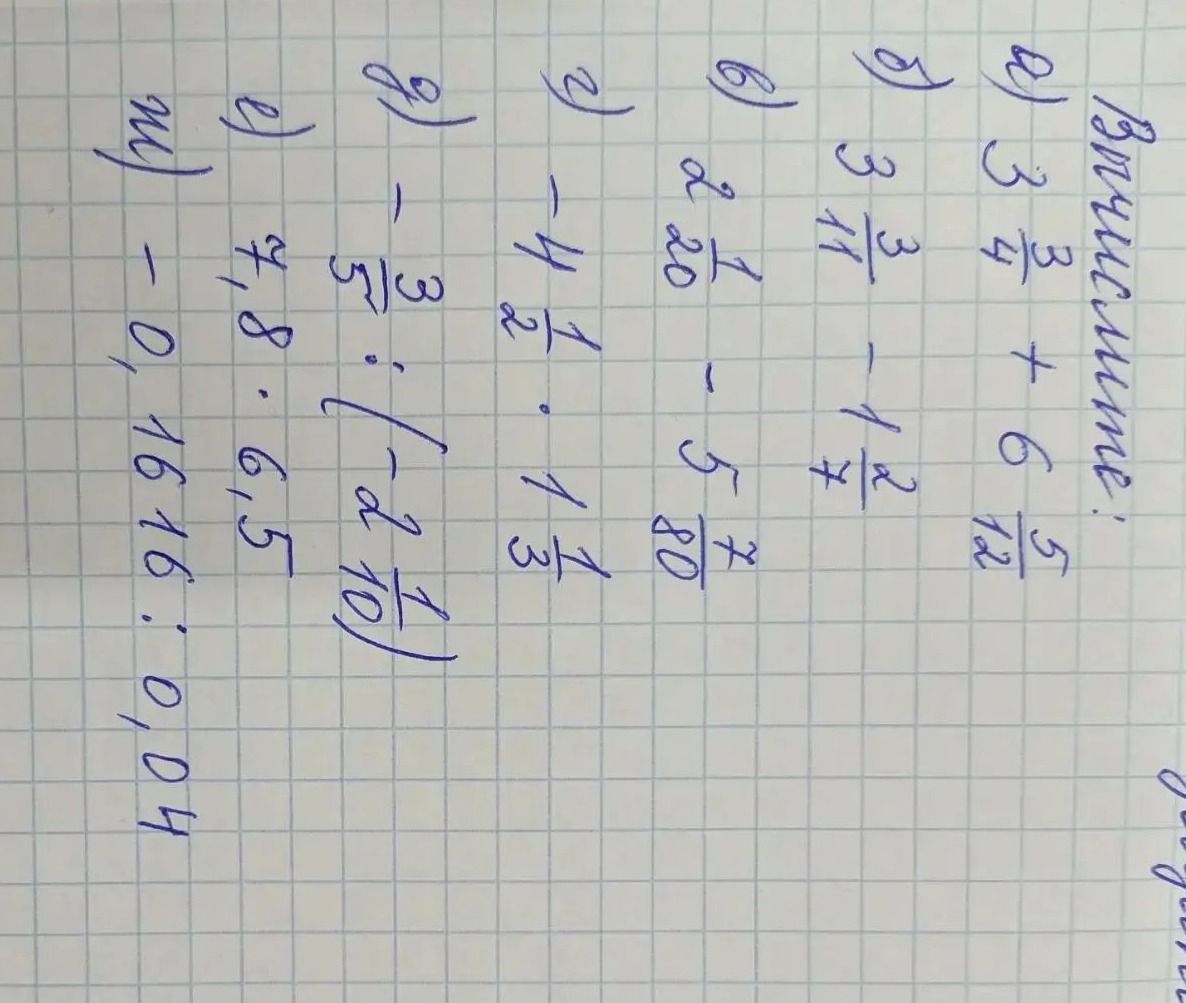 Вычислите:
а) 3 3/4 + 6 5/12
б) 3 3/11 - 1 2/7
в) 2 1/20 - 5 7/80
г) - 4 1/2 · 1 1/3
д) - 3/5 : (-2 1/10)
е) 7,8 · 6,5
ж) - 0,1616 : 0,04